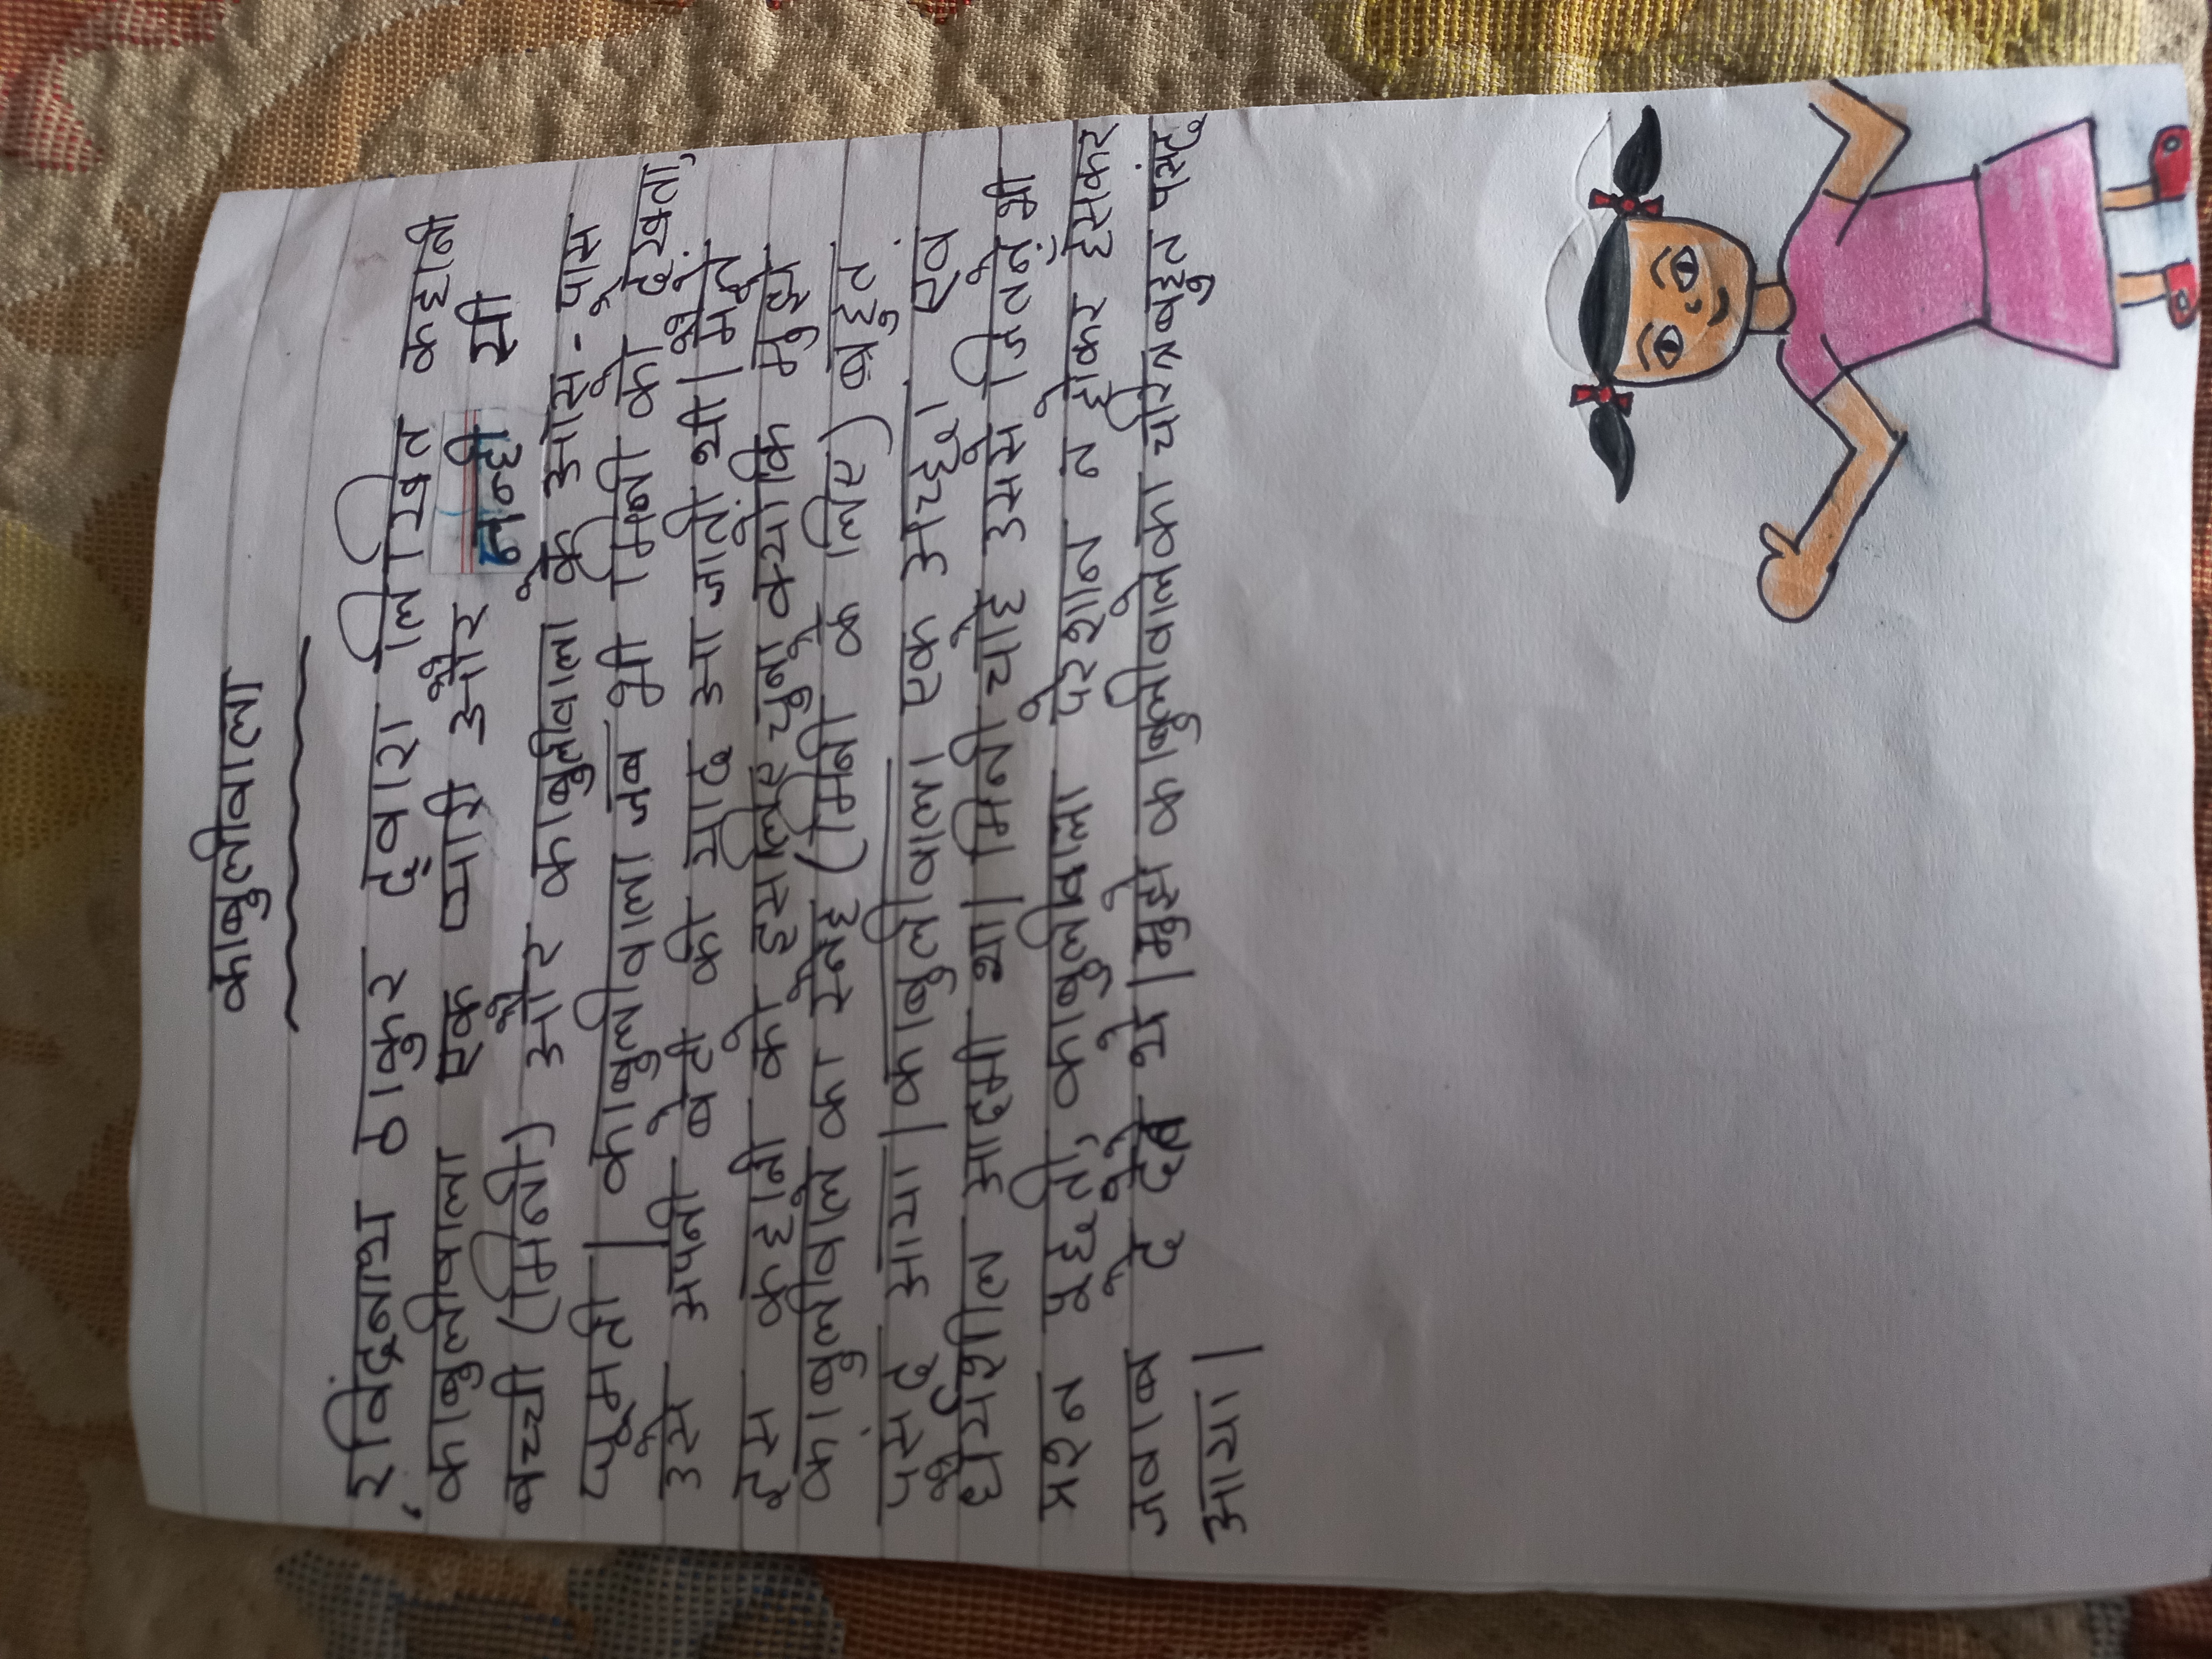 काबुलीवाला
रविंद्रनाथ ठाकुर द्वारा लिखित कहानी
काबुलीवाला एक प्यारी और नन्ही सी
बच्ची (मिनी) और काबुलीवाला के आस-पास
घूमती | काबुलीवाला जब भी मिनी को देखता,
उसे अपनी बेटी की याद आ जाती थी | मैंने
इस कहानी को इसलिए चुना क्योंकि मुझे
काबुलीवाले का स्नेह (मिनी के लिए) बहुत
पसंद आया | काबुलीवाला एक अच्छा एवं
धैर्यशील आदमी था | मिनी चाहे उससे जितने भी
प्रश्न पूछती, काबुलीवाला परेशान न होकर हंसकर
जवाब दे देते थे | मुझे काबुलीवाले का चरित्र बहुत पसंद
आया |